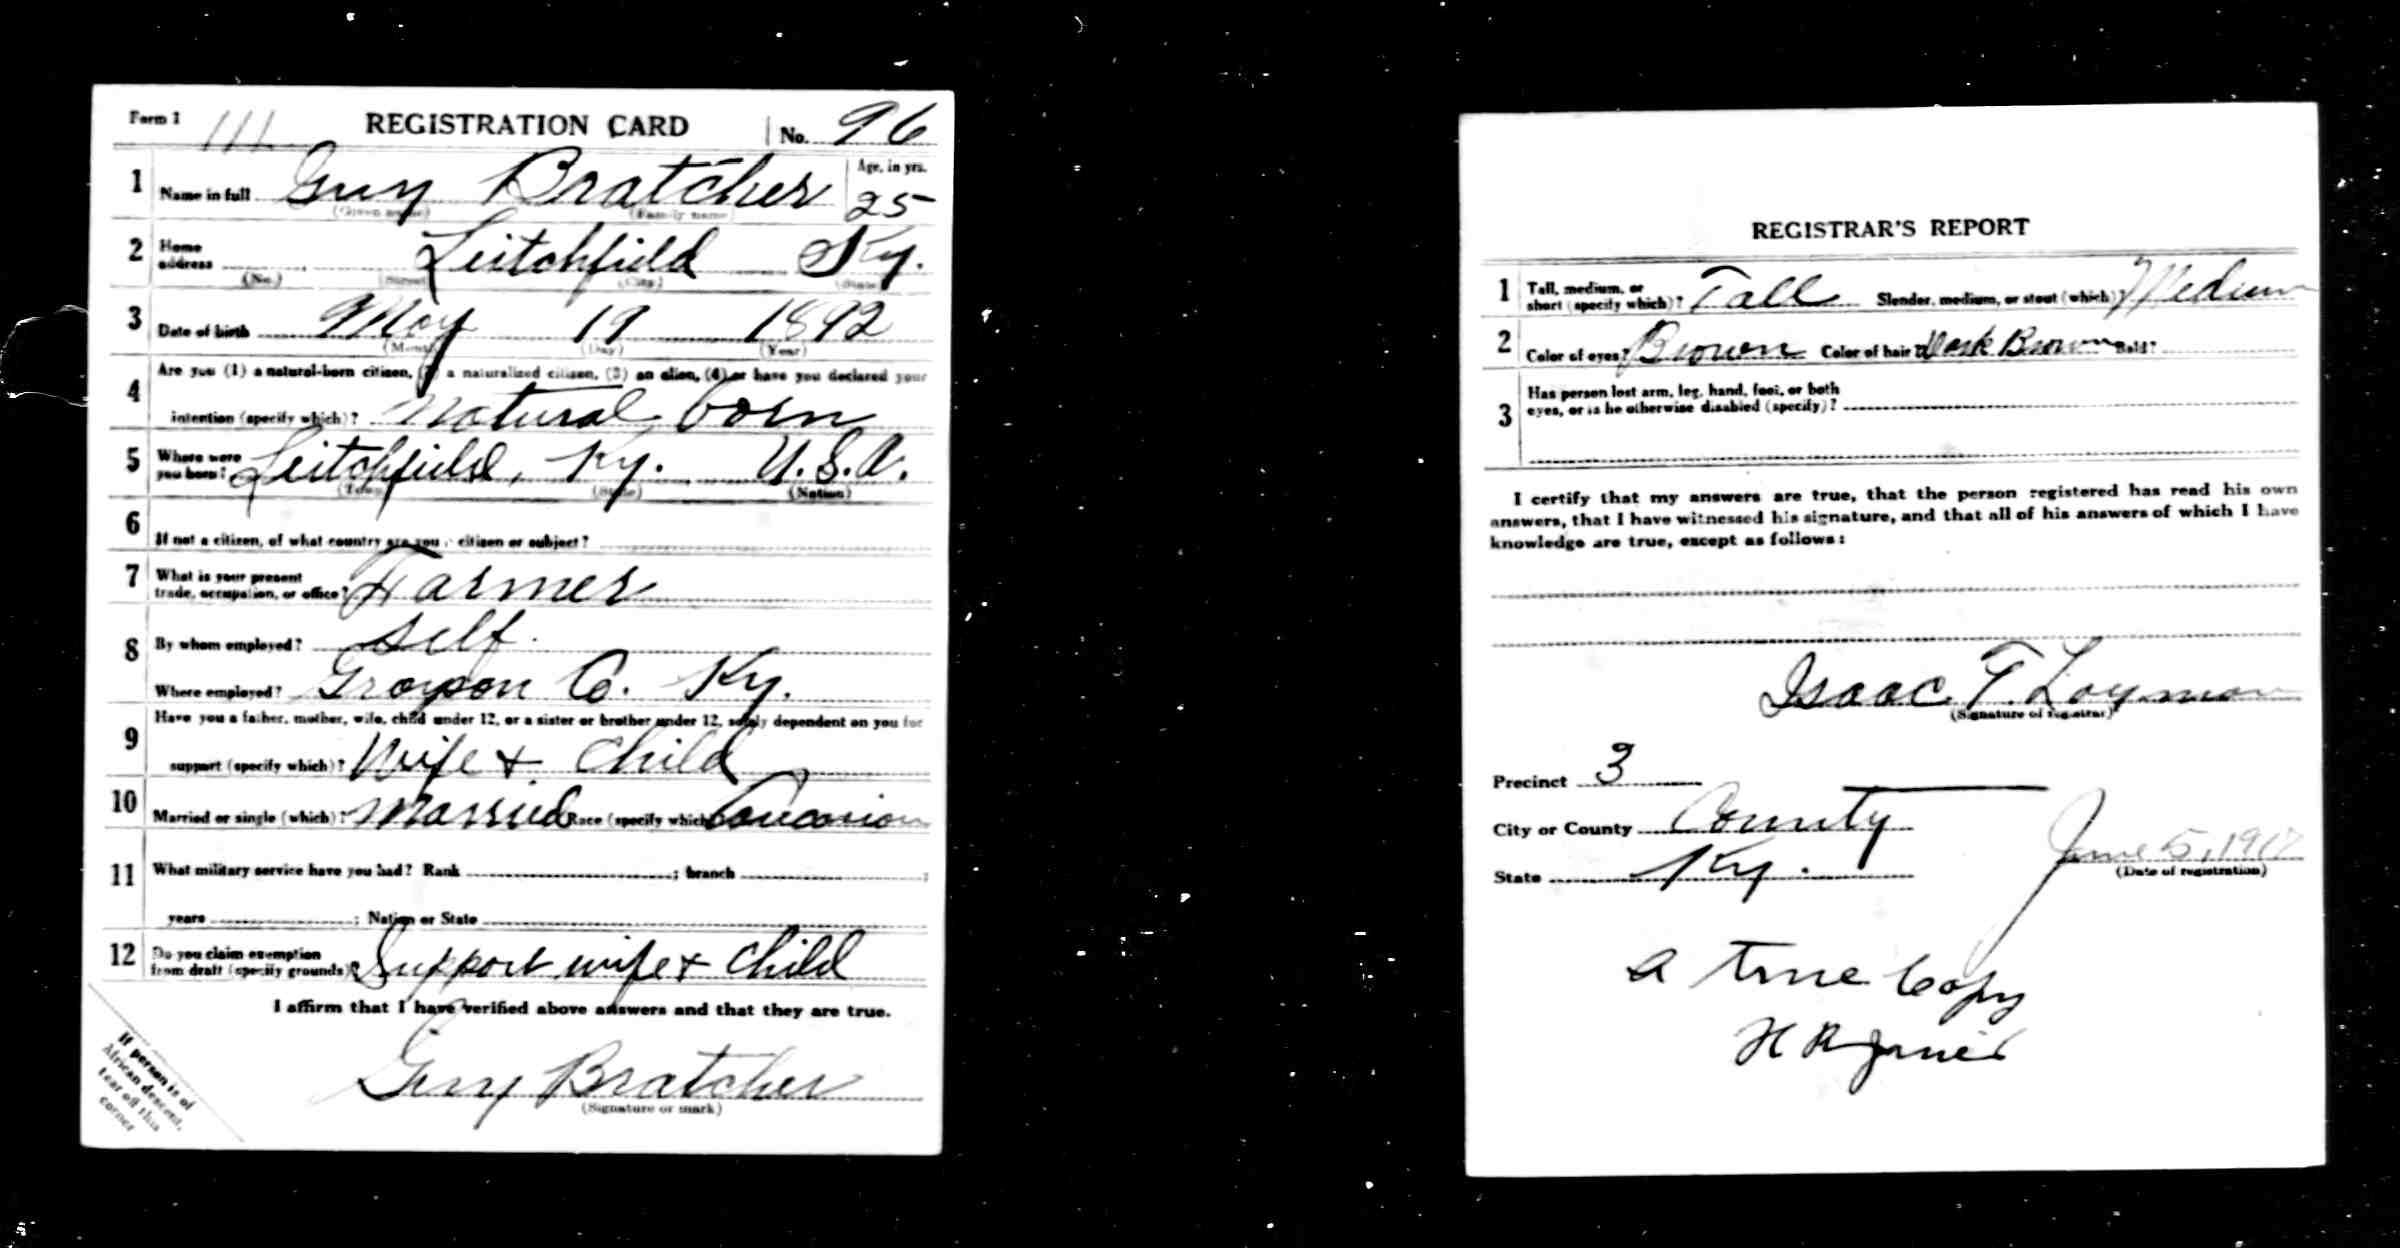 Form 1 111 REGISTRATION CARD No. 96
1 Name in full Guy Bratcher Age, in yrs. 25
(Given name) (Family name)
2 Home address Leitchfield Ky.
(No.) (Street) (City) (State)
3 Date of birth May 19 1892
(Month) (Day) (Year)
4 Are you (1) a natural-born citizen, (2) a naturalized citizen, (3) an alien, (4) or have you declared your
intention (specify which)? Natural born
5 Where were you born? Leitchfield, Ky. U.S.A.
(Town) (State) (Nation)
6 If not a citizen, of what country are you a citizen or subject?
7 What is your present trade, occupation, or office? Farmer
8 By whom employed? Self.
Where employed? Grayson Co. Ky.
9 Have you a father, mother, wife, child under 12, or a sister or brother under 12, solely dependent on you for
support (specify which)? Wife + Child
10 Married or single (which)? Married Race (specify which) Caucasion
11 What military service have you had? Rank ; branch ;
years ; Nation or State
12 Do you claim exemption from draft (specify grounds)? Support wife + Child
I affirm that I have verified above answers and that they are true.
Guy Bratcher
(Signature or mark)
If person is of
African descent,
tear off this
corner
REGISTRAR'S REPORT
1 Tall, medium, or short (specify which)? Tall Slender, medium, or stout (which)? Medium
2 Color of eyes? Brown Color of hair? Dark Brown Bald?
3 Has person lost arm, leg, hand, foot, or both
eyes, or is he otherwise disabled (specify)?
I certify that my answers are true, that the person registered has read his own
answers, that I have witnessed his signature, and that all of his answers of which I have
knowledge are true, except as follows:
Isaac T. Layman
(Signature of registrar)
Precinct 3
City or County County
State Ky.
June 5, 1917
(Date of registration)
A true Copy
H R